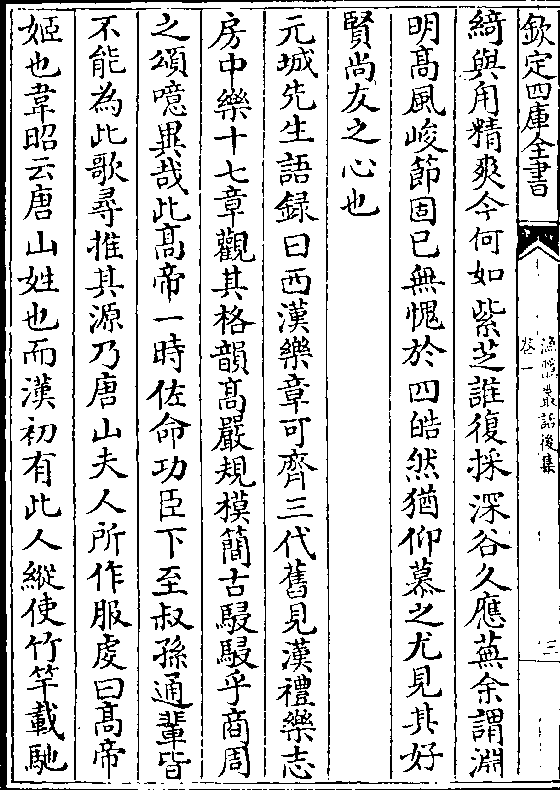 欽定四庫全書
漁隱叢話後集
卷一
三
綺與角精爽今何如紫芝誰復採深谷久應蕪余謂淵
明髙風峻節固已無愧於四皓然猶仰慕之尤見其好
賢尚友之心也
元城先生語録曰西漢樂章可齊三代舊見漢禮樂志
房中樂十七章觀其格韻髙嚴規模簡古駸駸乎商周
之頌噫異哉此髙帝一時佐命功臣下至叔孫通輩皆
不能為此歌尋推其源乃唐山夫人所作服虔曰髙帝
姬也韋昭云唐山姓也而漢初有此人縱使竹竿載馳